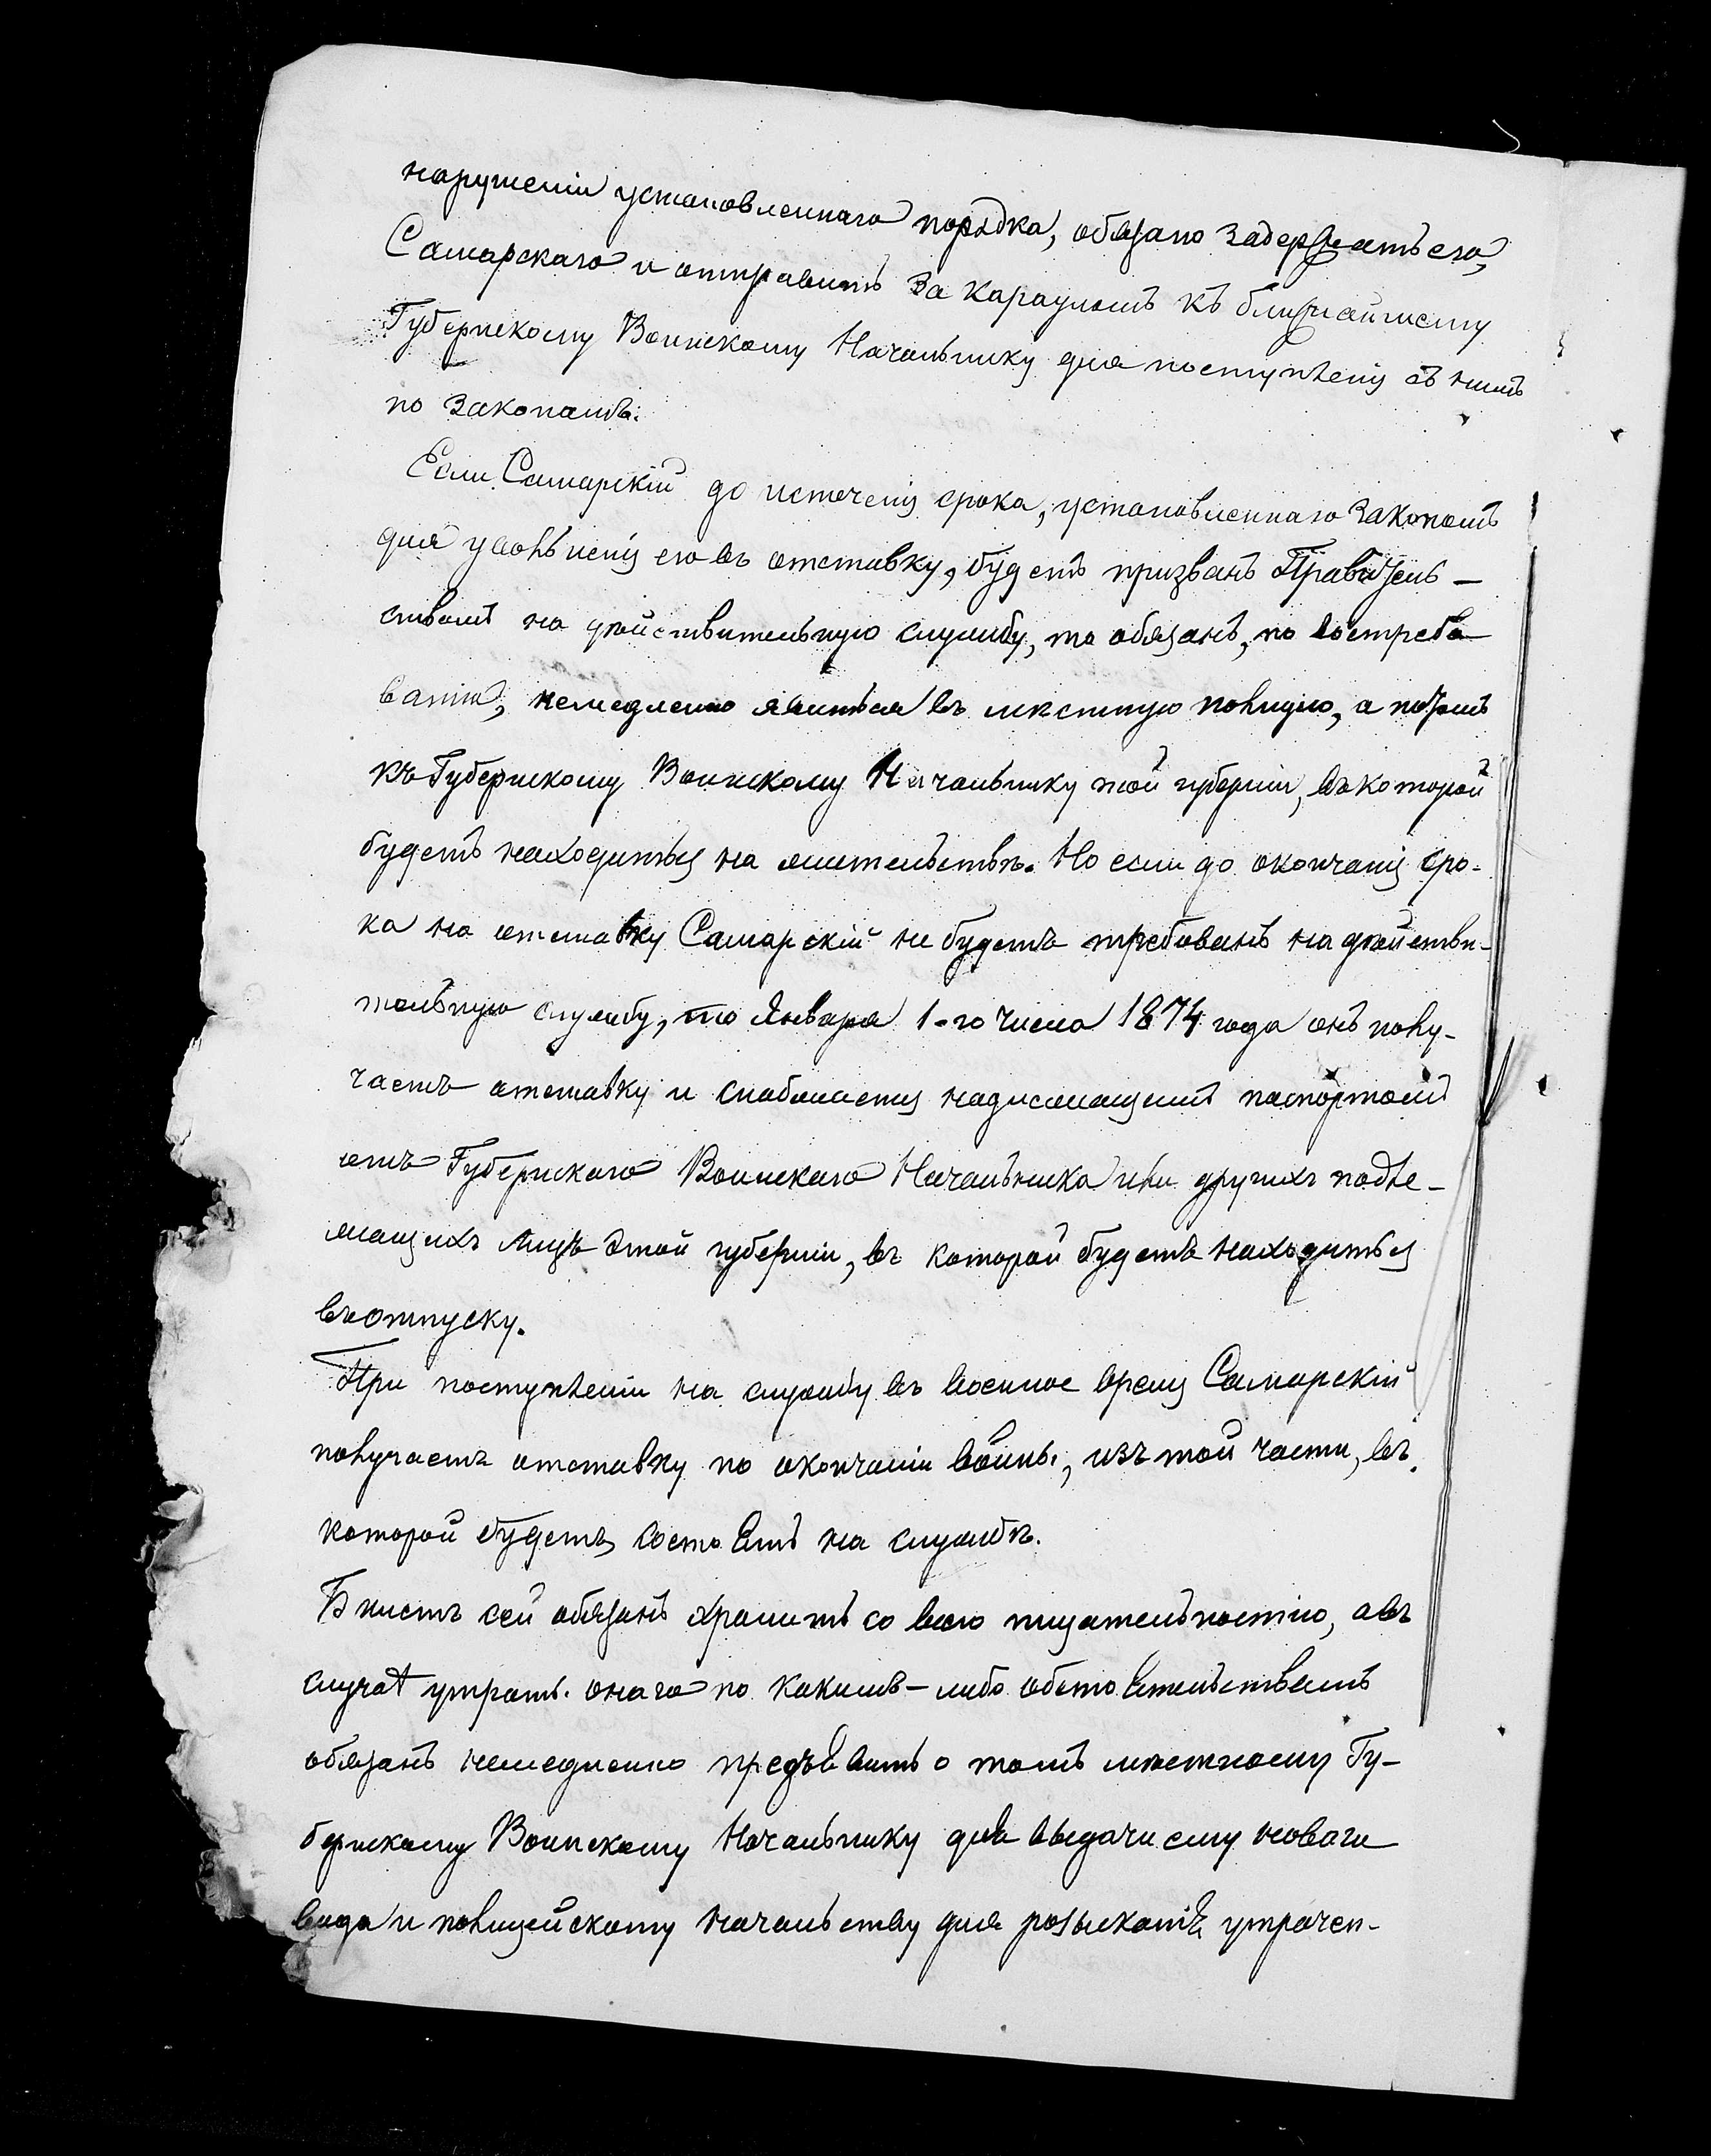 нарушеніи установленнаго порядка, обязано задержать его,
Самарскаго и отправить за карауломъ къ ближайшему
Губернскому Воинскому Начальнику для поступленія съ нимъ
по законамъ.
Если Самарскій до истеченія срока, установленнаго закономъ
для увольненія его въ отставку, будетъ призванъ Правитель-
ствомъ на дѣйствительную службу, то обязанъ, по востребо
ванію, немедленно явиться въ мѣстную полицію, а потомъ
къ Губернскому Воинскому Начальнику той губерніи, въ которой
будетъ находиться на жительствѣ. Но если до окончанія сро-
ка на отставку Самарскій не будетъ требованъ на дѣйстви-
тельную службу, то Января 1-го числа 1874 года онъ полу-
чаетъ отставку и снабжается надлежащимъ паспортомъ
отъ Губернскаго Воинскаго Начальника или другихъ подле-
жащихъ лицъ этой губерніи, въ которой будетъ находиться
въ отпуску.
При поступленіи на службу въ военное время Самарскій
получаетъ отставку по окончаніи войны, изъ той части, въ
которой будетъ состоять на службѣ.
Билетъ сей обязанъ хранить со всею тщательностію, а въ
случаѣ утраты онаго по какимъ-либо обстоятельствамъ
обязанъ немедленно предъявить о томъ мѣстному Гу-
бернскому Воинскому Начальнику для выдачи ему новаго
вида и полицейскому начальству для розысканія утрачен-